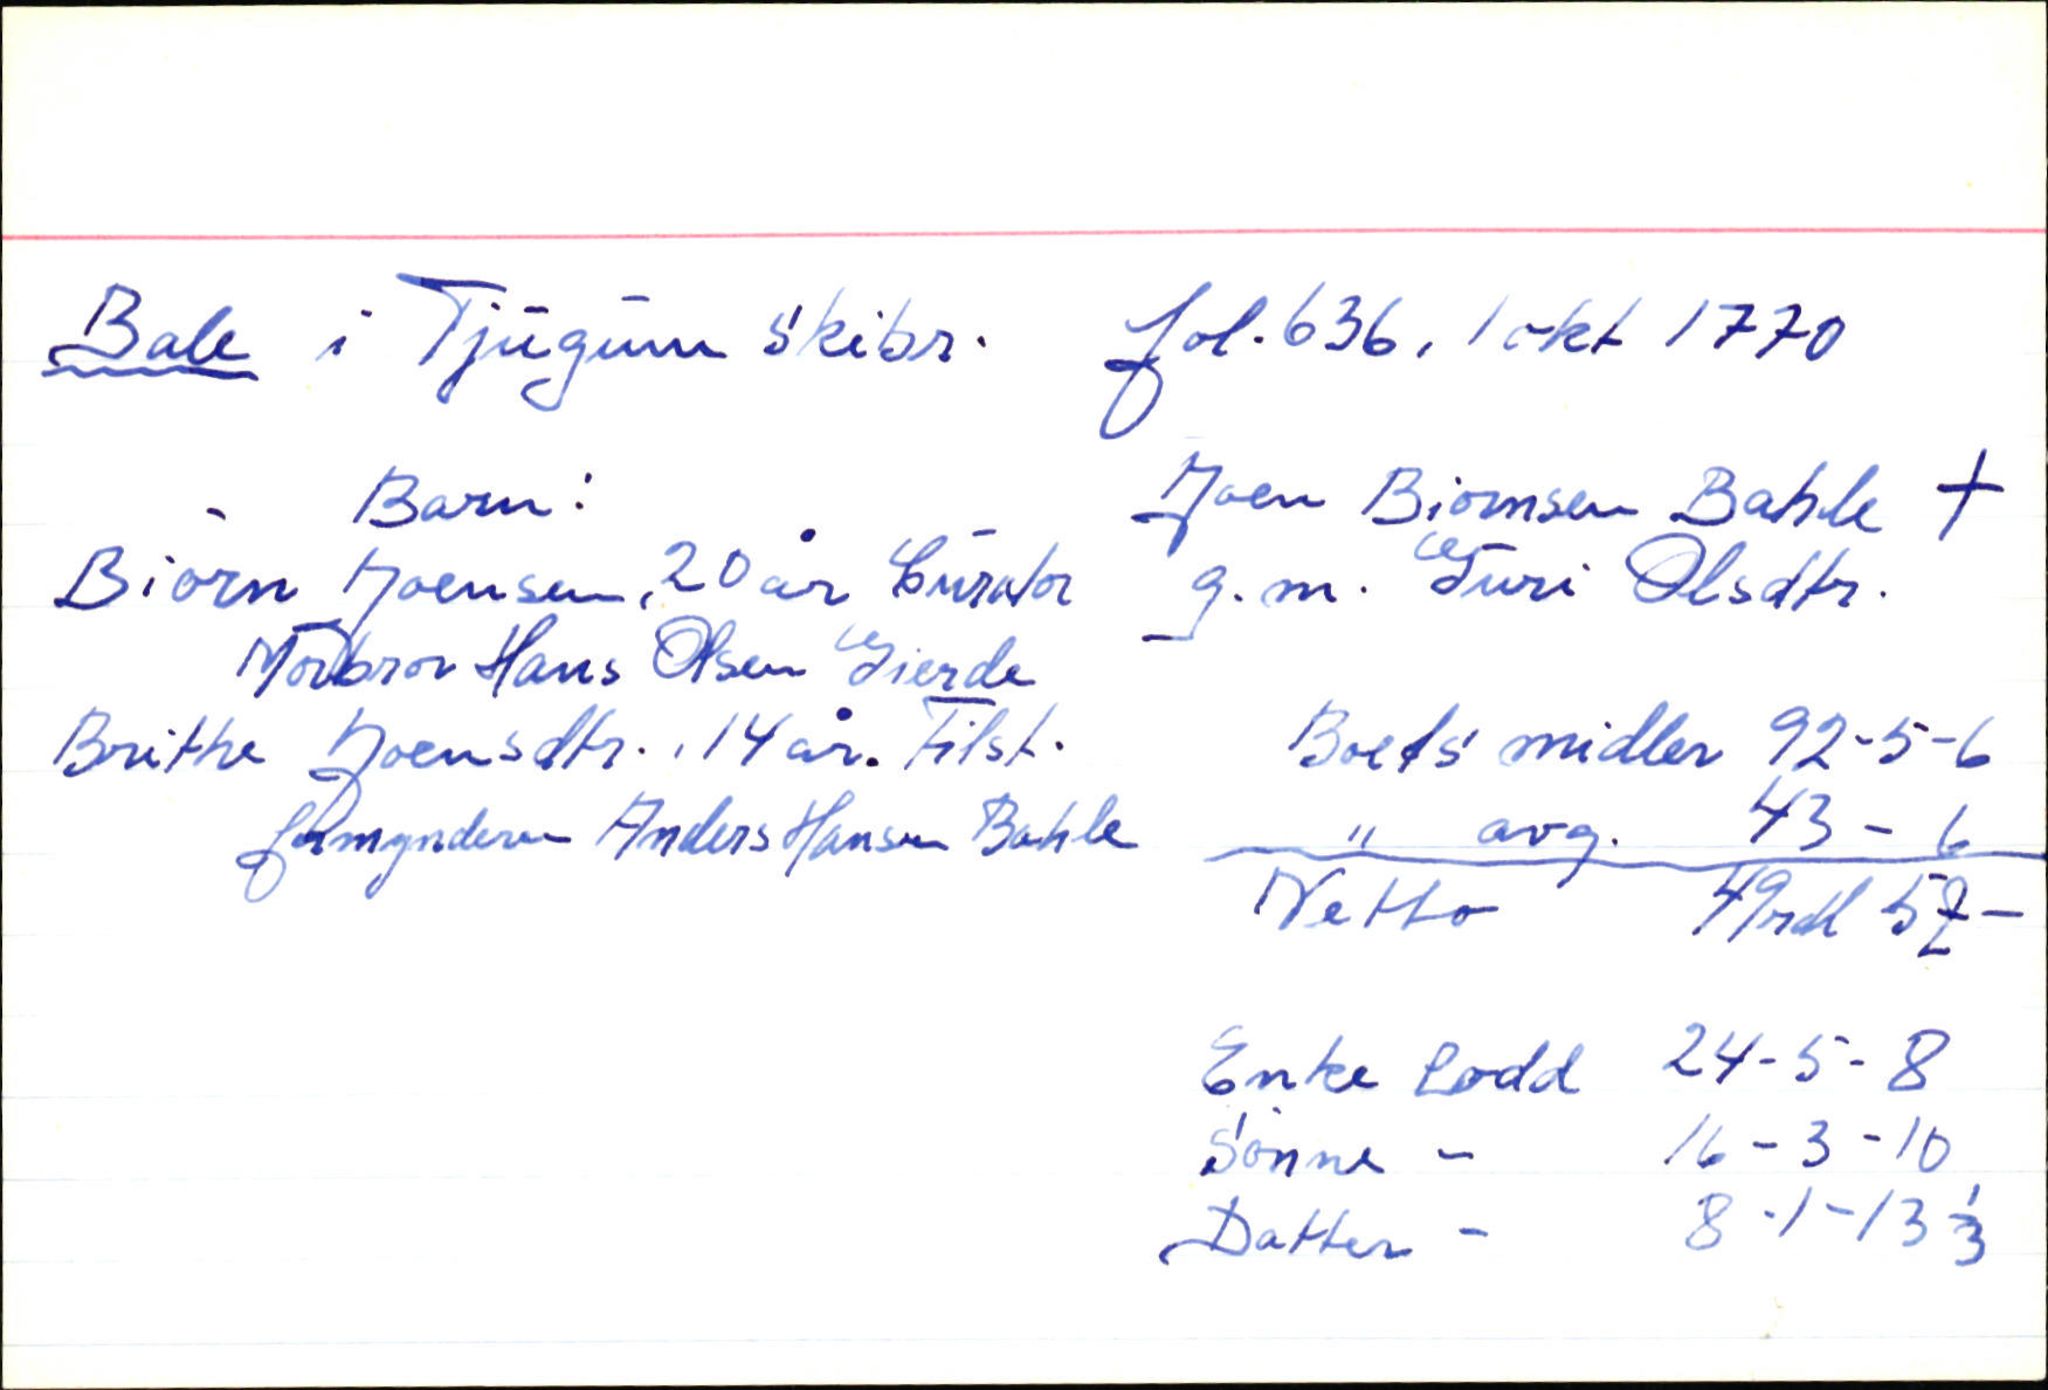 Bale i Tjugum skibr. fol. 636, 1 okt 1770
Joen Biørnsen Bahle +
g.m. Guri Olsdtr.
Barn:
Biørn Joensen, 20 år Curator
Morbror Hans Olsen Gierde
Brithe Joensdtr., 14 år. Tilst.
formynderen Anders Hansen Bahle
Boets midler 92-5-6
" avg. 43 - 6
Netto 49rdl 5 -
Enke Lodd 24-5-8
Sønne - 16-3-10
Datter - 8-1-13 1/3